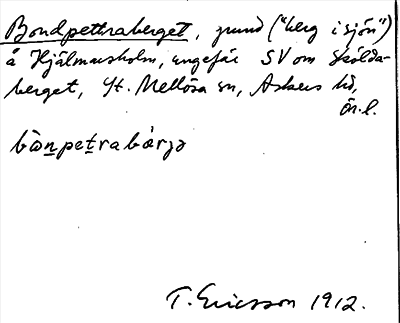 Bondpettraberget, grund ("berg i sjön")
å Hjälmarsholm, ungefär SV om Sköldaberget, St. Mellösa sn, Askers hd,
Ör.l.
bòn̲pet̲rabærjə
T. Ericsson 1912.